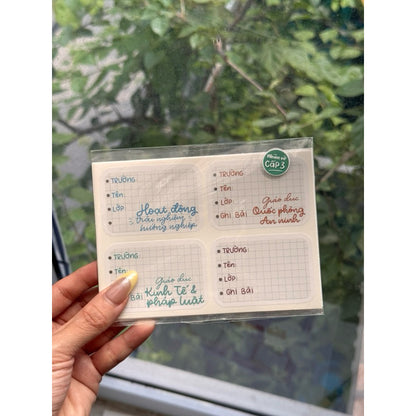 Nhãn vở
Cấp 3
TRƯỜNG:
Tên:
Lớp:
Hoạt động
trải nghiệm
hướng nghiệp
TRƯỜNG:
Tên:
Lớp:
Giáo dục
Ghi Bài
Quốc phòng
An ninh
TRƯỜNG:
Tên:
Giáo dục
Bài
Kinh Tế &
pháp luật
TRƯỜNG:
Tên:
Lớp:
Ghi Bài